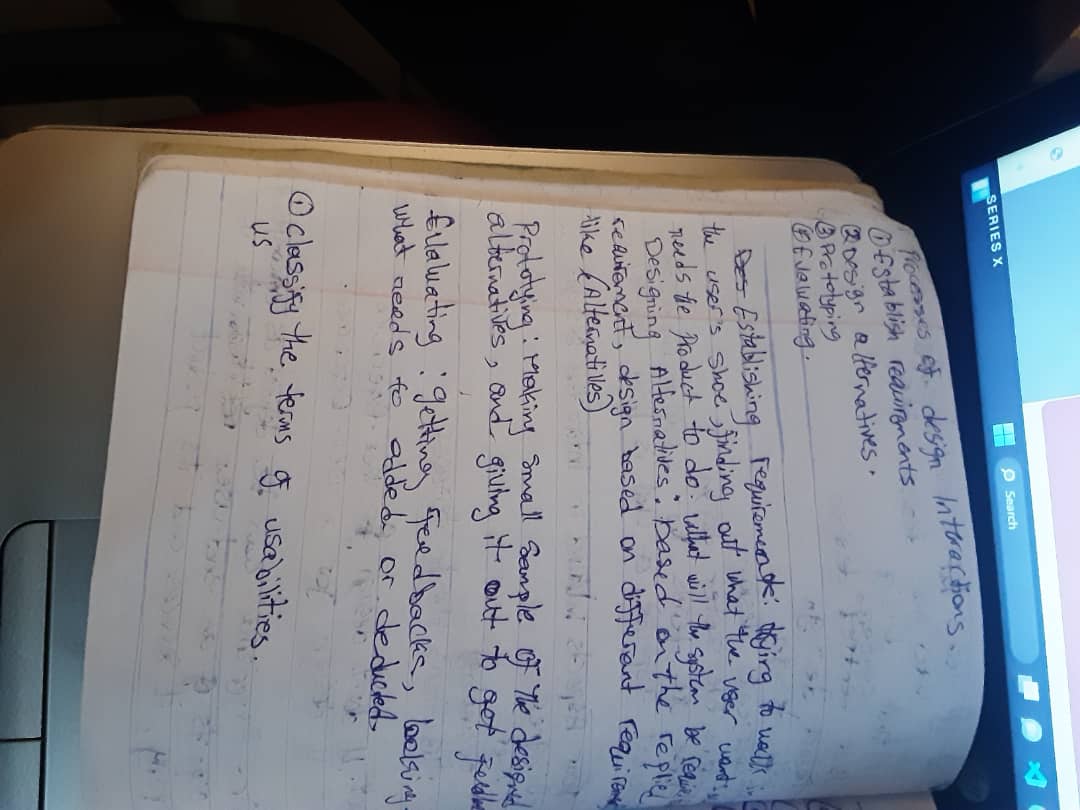 SERIES X
Search
Processes of design Interactions.
① Establish requirements
② Design alternatives.
③ Prototyping
④ Evaluating.
Establishing requirements: trying to walk
the user's shoe, finding out what the user want
needs the product to do. What will the system be
Designing Alternatives: based on the replied
requirement, design based on different
like (Alternatives)
Prototying: Making small sample of the designed
alternatives, and giving it out to get
Evaluating: getting feedbacks, looking
what needs to added or deducted
① classify the terms of usabilities.
us